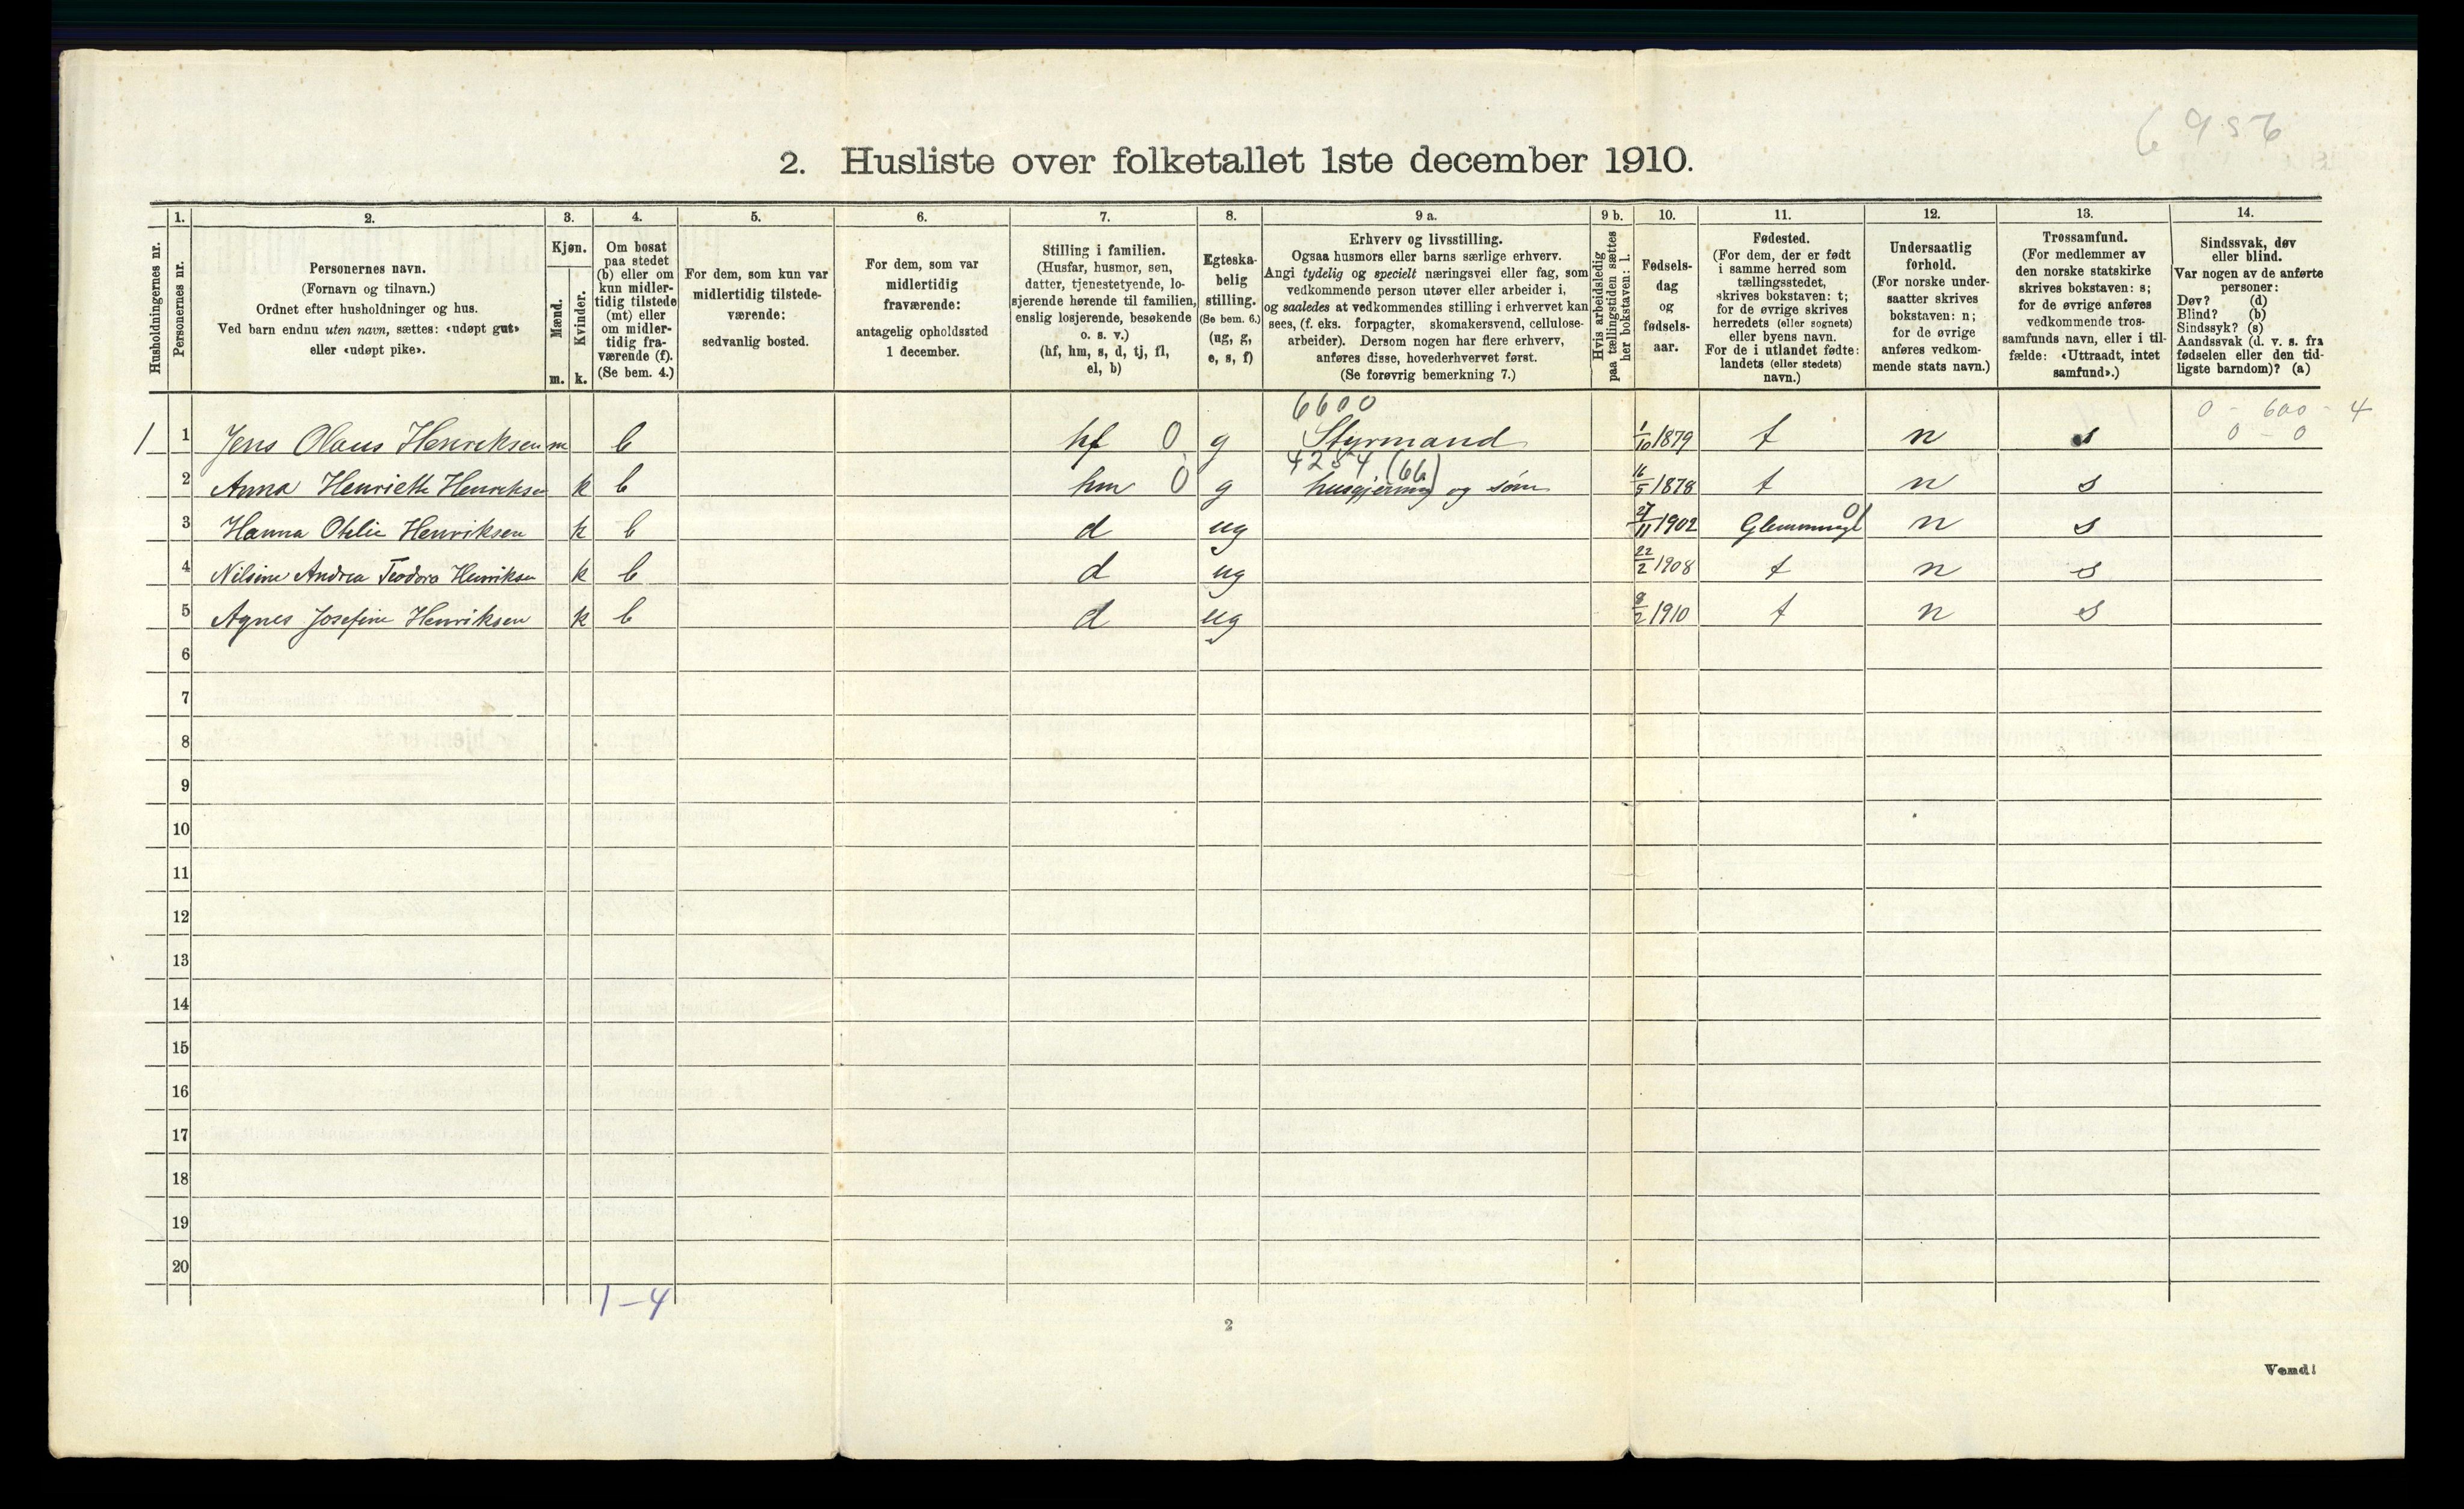 6956
2. Husliste over folketallet 1ste december 1910.
Husholdningernes nr.
1.
Personernes nr.
2.
Personernes navn.
(Fornavn og tilnavn.)
Ordnet efter husholdninger og hus.
Ved barn endnu uten navn, sættes: «udøpt gut»
eller «udøpt pike».
3.
Kjøn.
Mænd.
Kvinder.
m. k.
4.
Om bosat
paa stedet
(b) eller om
kun midler-
tidig tilstede
(mt) eller
om midler-
tidig fra-
værende (f).
(Se bem. 4.)
5.
For dem, som kun var
midlertidig tilstede-
værende:
sedvanlig bosted.
6.
For dem, som var
midlertidig
fraværende:
antagelig opholdssted
1 december.
7.
Stilling i familien.
(Husfar, husmor, søn,
datter, tjenestetyende, lo-
sjerende hørende til familien,
enslig losjerende, besøkende
o. s. v.)
(hf, hm, s, d, tj, fl,
el, b)
8.
Egteska-
belig
stilling.
(Se bem. 6.)
(ug, g,
e, s, f)
9 a.
Erhverv og livsstilling.
Ogsaa husmors eller barns særlige erhverv.
Angi tydelig og specielt næringsvei eller fag, som
vedkommende person utøver eller arbeider i,
og saaledes at vedkommendes stilling i erhvervet kan
sees, (f. eks. forpagter, skomakersvend, cellulose-
arbeider). Dersom nogen har flere erhverv,
anføres disse, hovederhvervet først.
(Se forøvrig bemerkning 7.)
9 b.
Hvis arbeidsledig
paa tællingstiden sættes
her bokstaven: l.
10.
Fødsels-
dag
og
fødsels-
aar.
11.
Fødested.
(For dem, der er født
i samme herred som
tællingsstedet,
skrives bokstaven: t;
for de øvrige skrives
herredets (eller sognets)
eller byens navn.
For de i utlandet fødte:
landets (eller stedets)
navn.)
12.
Undersaatlig
forhold.
(For norske under-
saatter skrives
bokstaven: n;
for de øvrige
anføres vedkom-
mende stats navn.)
13.
Trossamfund.
(For medlemmer av
den norske statskirke
skrives bokstaven: s;
for de øvrige anføres
vedkommende tros-
samfunds navn, eller i til-
fælde: «Uttraadt, intet
samfund».)
14.
Sindssvak, døv
eller blind.
Var nogen av de anførte
personer:
Døv? (d)
Blind? (b)
Sindssyk? (s)
Aandssvak (d. v. s. fra
fødselen eller den tid-
ligste barndom)? (a)
6600 0 - 600 - 4
1 1 Jens Olaus Henriksen m b hf 0 g Styrmand 1/10 1879 t n s 0 - 0
4254 (66)
2 Anna Henriette Henriksen k b hm 0 g husgjerning og søm 16/5 1878 t n s
3 Hanna Otelie Henriksen k b d ug 27/11 1902 Glemminge 01 n s
4 Nilsine Andrea Teodora Henriksen k b d ug 22/2 1908 t n s
5 Agnes Josefine Henriksen k b d ug 9/2 1910 t n s
6
7
8
9
10
11
12
13
14
15
16
17
18
19
20
1-4
2
Vend!